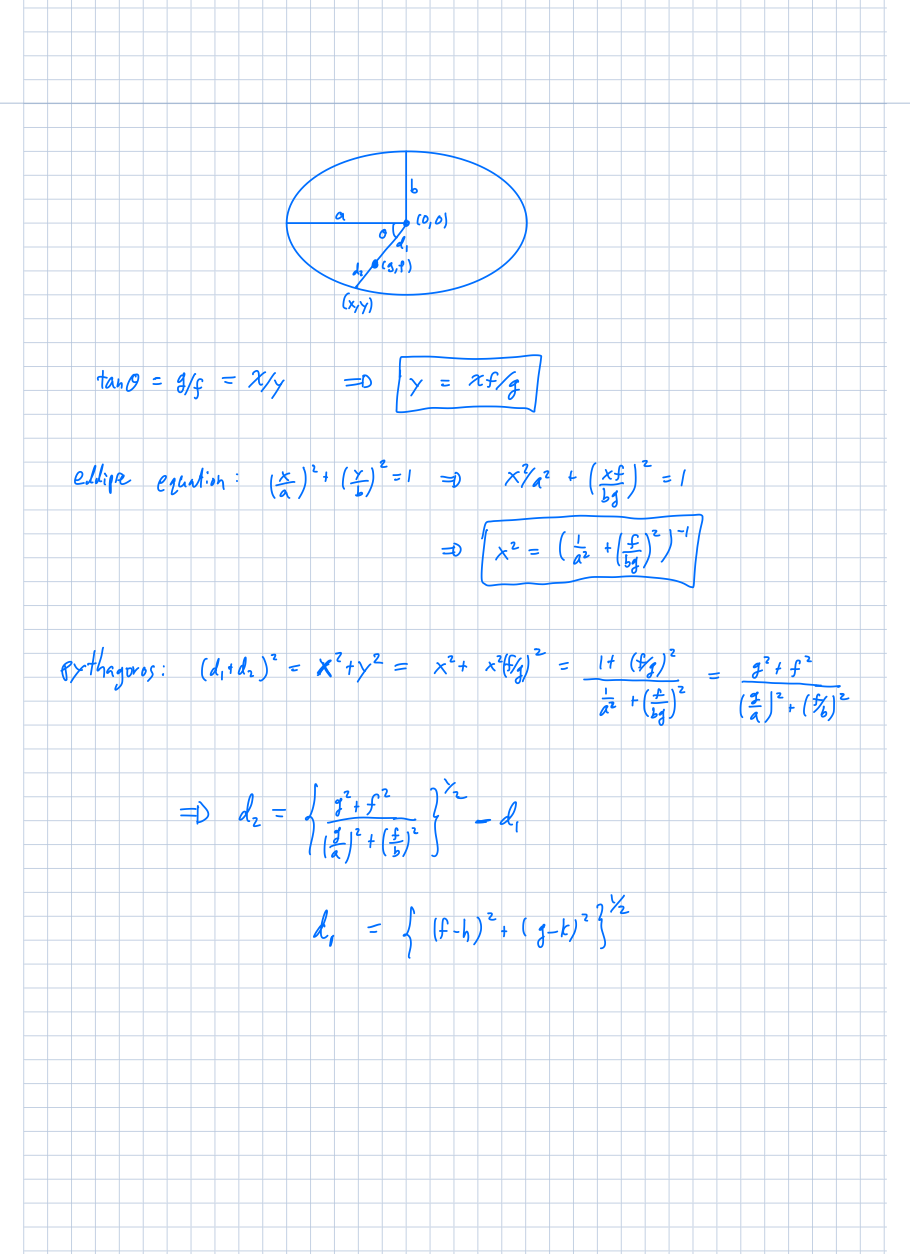 b
a (0,0)
θ d₁
d₂ (g,f)
(x,y)
tanθ = g/f = x/y ⇒ y = xf/g
ellipse equation: (x/a)² + (y/b)² = 1 ⇒ x²/a² + (xf/bg)² = 1
⇒ x² = (1/a² + (f/bg)²)⁻¹
pythagoros: (d₁+d₂)² = x²+y² = x² + x²(f/g)² = (1 + (f/g)²)/(1/a² + (f/bg)²) = (g² + f²)/((g/a)² + (f/b)²)
⇒ d₂ = {(g² + f²)/((g/a)² + (f/b)²)}^1/2 − d₁
d₁ = {(f−h)² + (g−k)²}^1/2